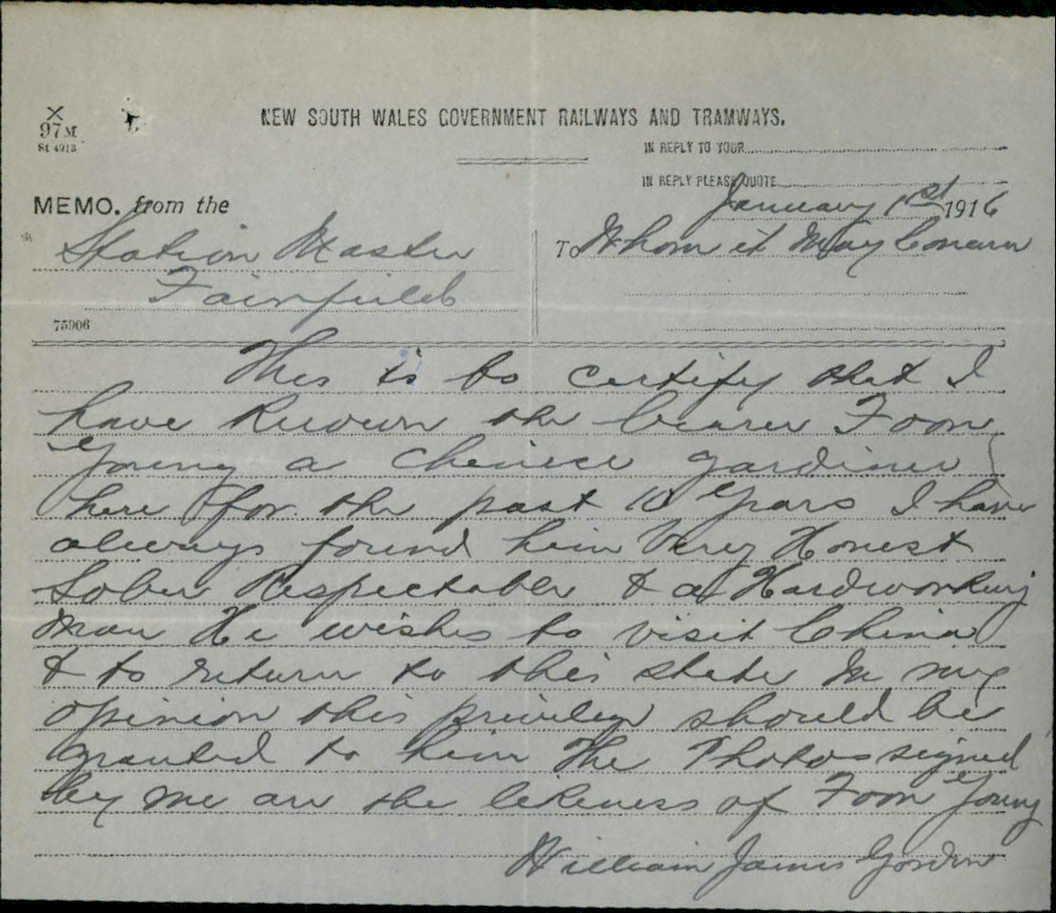 X
97M
St 4913
NEW SOUTH WALES GOVERNMENT RAILWAYS AND TRAMWAYS.
IN REPLY TO YOUR
IN REPLY PLEASE QUOTE
January 1st 1916
MEMO. from the
Station Master
Fairfield
To Whom it May Concern
75906
This is to certify that I
have Known the bearer Foon
Young a Chinese gardiner
here for the past 10 Years I have
always found him Very Honest
Sober Respectable & a Hardworking
Man He wishes to visit China
& to return to this state In my
opinion this privilege should be
granted to him The Photos signed
by me are the likeness of Foon Young
William James Gordon